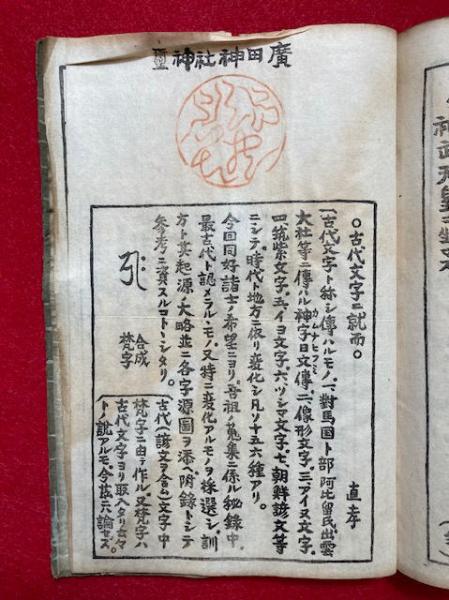 廣田神社神璽
○古代文字ニ就而○
直孝
一古代文字ト称シ傳ハルモノ、一、對馬国卜部阿比留氏、出雲
大社等ニ傳ハル神字日文傳、二、像形文字、三アイヌ文字、
カムナヒフミ
四、筑紫文字、五イヨ文字、六ツシマ文字、七、朝鮮諺文等
ニシテ、時代ト地方ニ依リ変化シ凡ソ十五六種アリ。
今回同好諸士ノ希望ニヨリ、吾祖ノ蒐集ニ係ル秘録中、
最古代ト認メラルヽモノ、又特ニ変化アルモノヲ採選シ、訓
方ト其起源ノ大略並ニ各字源圖ヲ添ヘ附録トシテ
参考ニ資スルコトヽシタリ。
合成
梵字
古代(諺文ヲ含ム)文字中
梵字ニ由テ作ル、又梵字ハ
古代文字ヨリ取入タリ云々
トノ説アルモ、今茲ニハ論セズ。
神武天皇